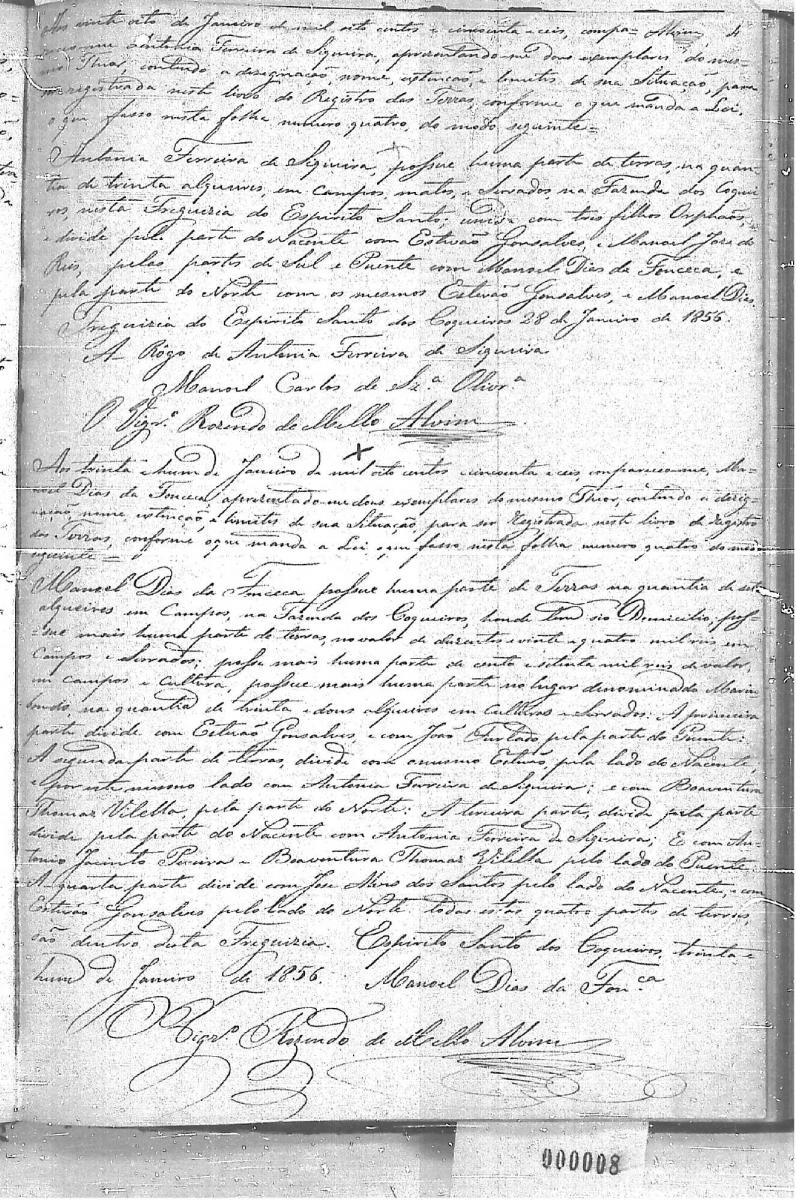 Aos vinte oito de Janeiro de mil oito centos e cincoenta e ceis, compa= Alvim 4
receu me Antonia Ferreira de Siqueira, aprezentando-me dous exemplares do mes=
mo Thior, contendo a designação, nome, extenção, e limites de sua Situação, para
ser registrada neste livro do Registro das Terras, conforme o que manda a Lei,
o que fasso nesta folha numero quatro, do modo seguinte=
Antonia Ferreira de Siqueira, possue huma parte de terras, na quan=
tia de trinta alqueires, em campos, matos, e Serrados na Fazenda dos Coquei
ros, nesta Freguizia do Espirito Santo, unida com tres filhos Orphaõs,
e divide pela parte do Nacente com Estevaõ Gonsalves, e Manoel Joze de
Reis, pelas partes do Sul e Puente com Manoel Dias da Fonceca, e
pela parte do Norte com os mesmos Estevaõ Gonsalves, e Manoel Dias.
Freguizia do Espirito Santo dos Coqueiros 28 de Janeiro de 1856.
A Rôgo de Antonia Ferreira de Siqueira
Manoel Carlos de Sz.ª Olivr.ª
O Vigr.º Rozendo de Mello Alvim
Aos trinta e hum de Janeiro de mil oito centos e cincoenta e ceis, compareceo-me, Ma=
noel Dias da Fonceca, aprezentado-me dous exemplares do mesmo Thior, contendo a dezig=
nação, nome extenção, e limites de sua Situação, para ser Registrada neste livro de registro
das Terras, conforme o que manda a Lei o que fasso nesta folha numero quatro do modo
seguinte=
Manoel Dias da Fonceca, possue huma parte de Terras na quantia de sete
alqueires em Campos, na Fazenda dos Coqueiros, honde tem sio Domicilio; pos=
=sue mais huma parte de terras, no valor de duzentos e vinte e quatro mil reis em
Campos e Serrados; possue mais huma parte de cento e setenta mil reis de valor,
em campos e cultura, possue mais huma parte no lugar denominado Marim
bondo, na quantia de trinta e dous alqueires em Culturas e Serrados: A primeira
parte divide com Estevaõ Gonsalves, e com João Furtado pela parte do Puente:
A segunda parte de terras, divide com o mesmo Estevaõ, pelo lado do Nacente,
e por este mesmo lado com Antonia Ferreira de Siqueira; e com Boaventura
Thomaz Vilella, pela parte do Norte: A terceira parte, divide pela parte
divide pela parte do Nacente com Antonia Ferreira de Siqueira; E com An=
tonio Jacinto Pereira e Boaventura Thomaz Vilella pelo lado do Puente:
A quarta parte divide com Jose Alves dos Santos pelo lado do Nacente, e com
Estevaõ Gonsalves pelo lado do Norte: todas estas quatro partes de terras,
são dentro desta Freguizia. Espirito Santo dos Coqueiros, trinta e
hum de Janeiro de 1856. Manoel Dias da Fon.ca
O Vigr.º Rozendo de Mello Alvim
000008